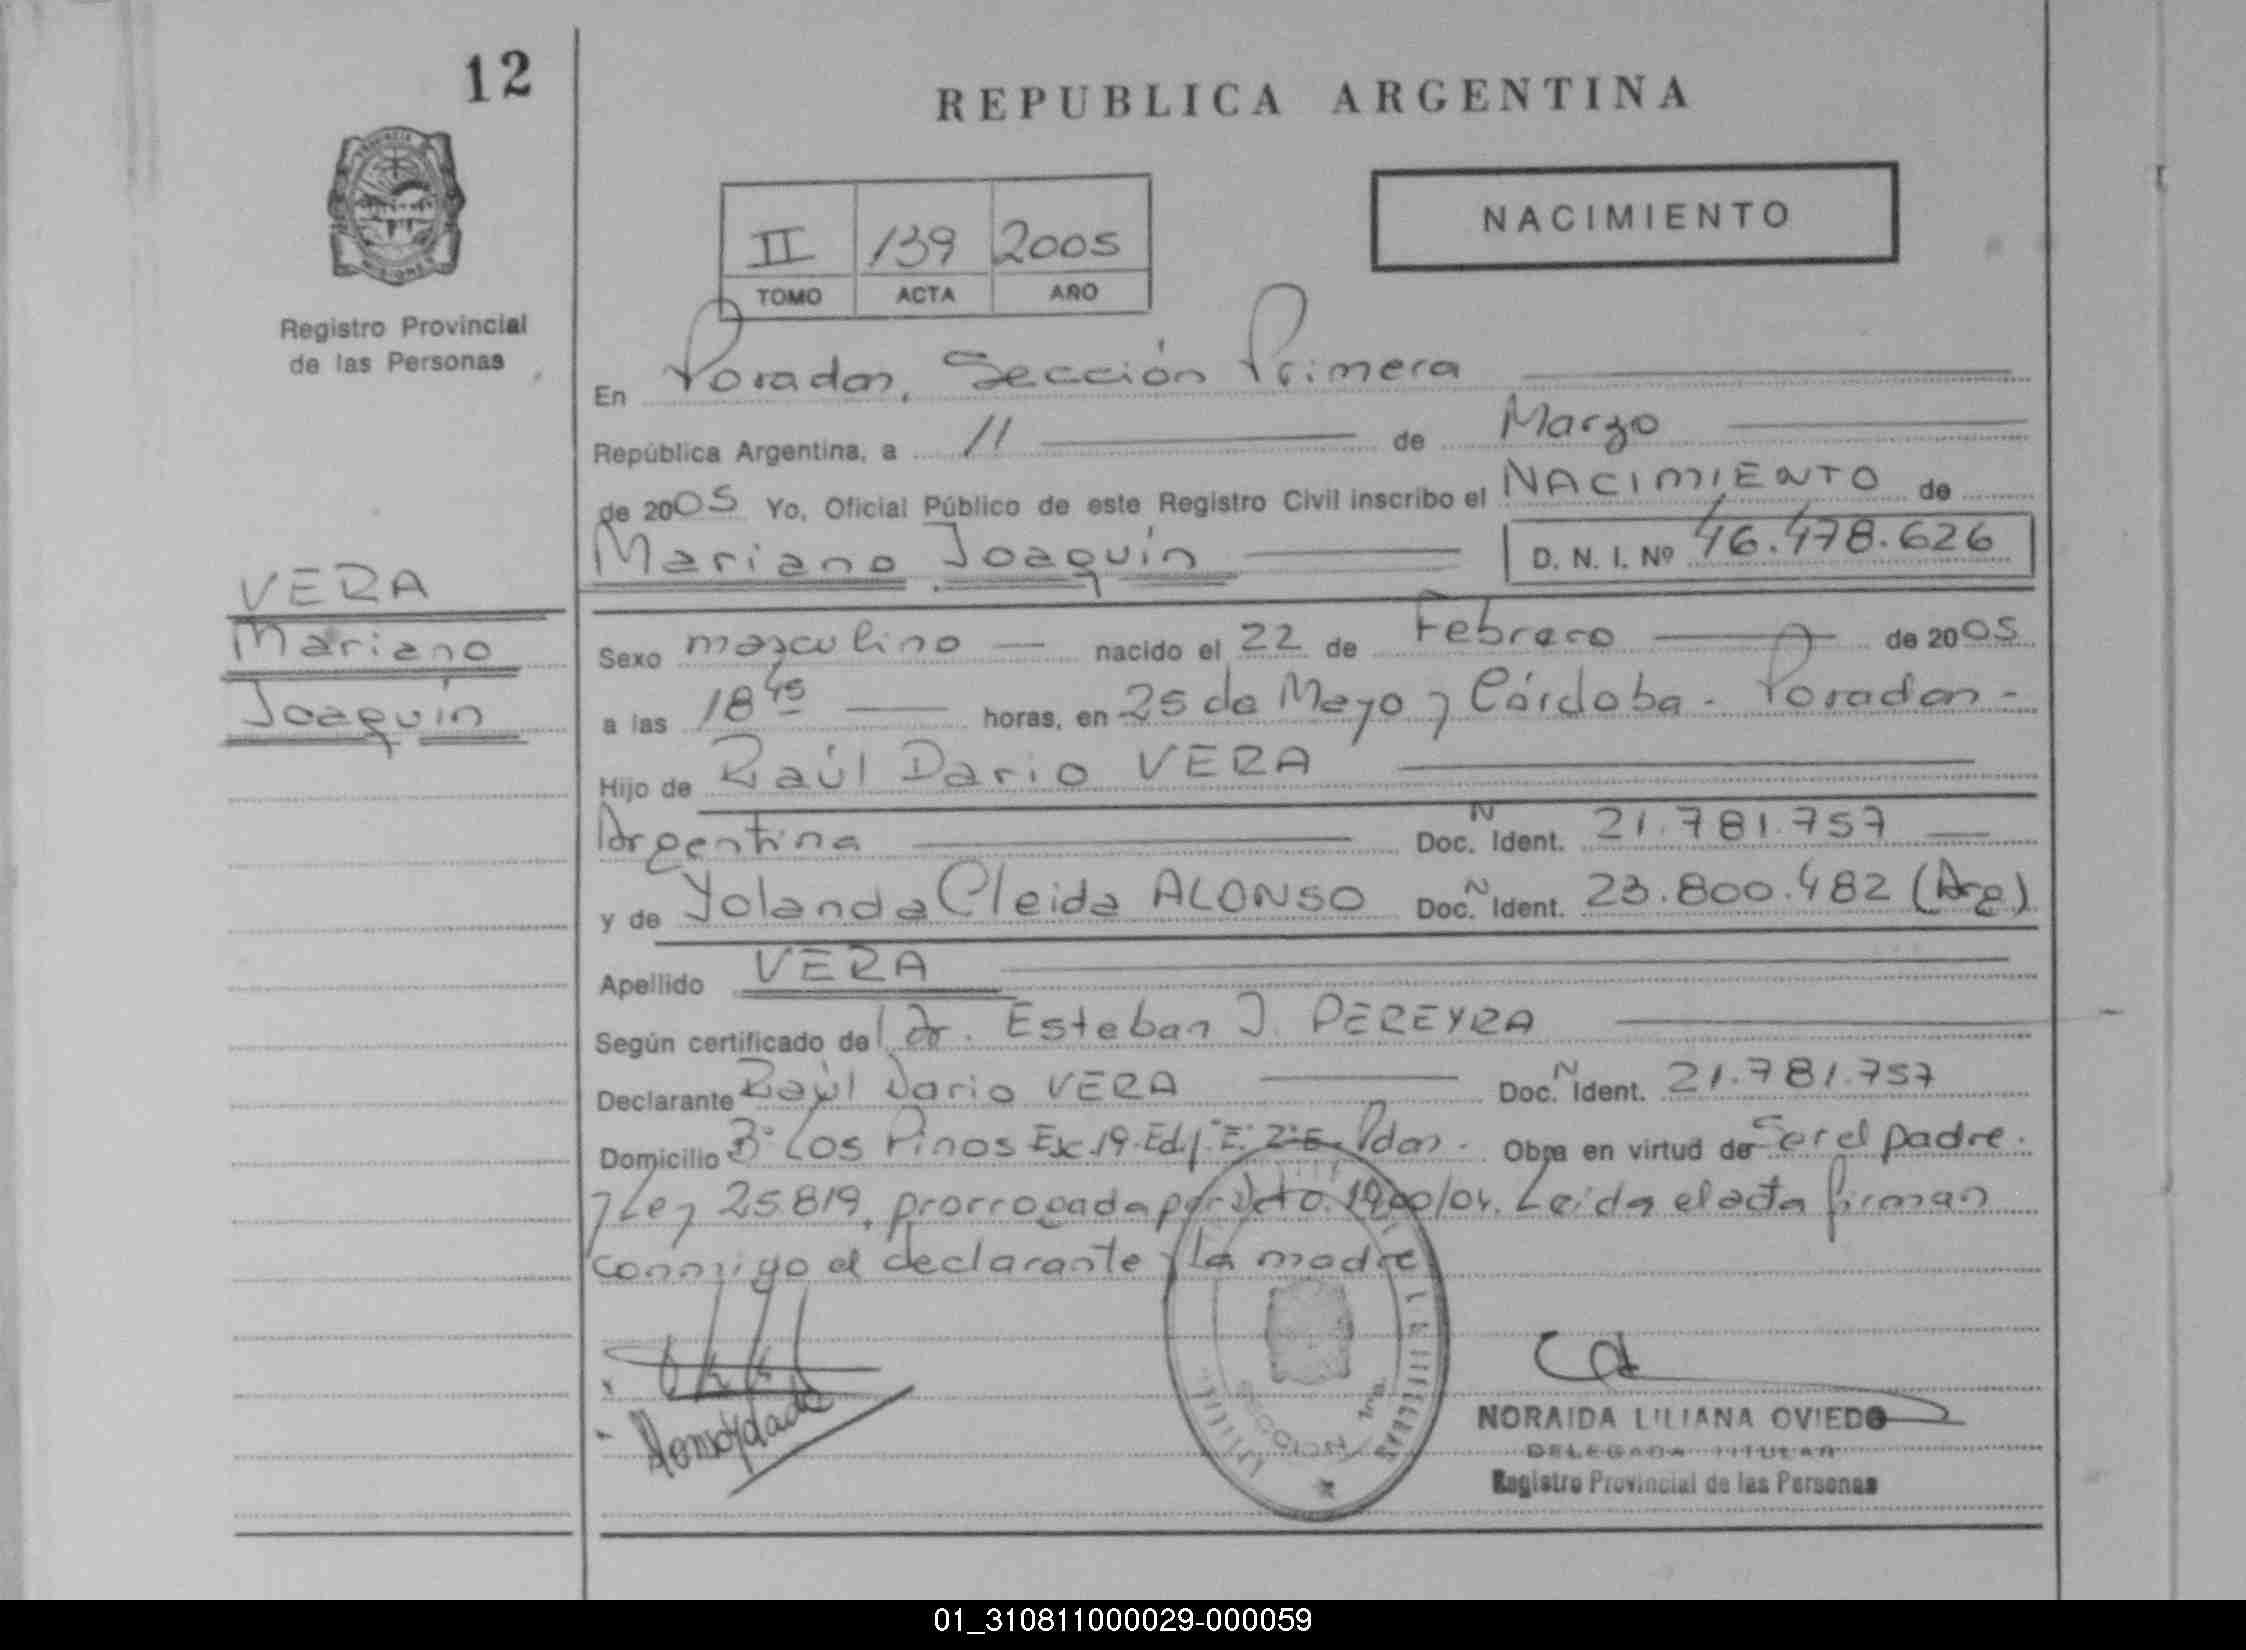 12
REPUBLICA ARGENTINA
PROVINCIA
MISIONES
Registro Provincial
de las Personas
II 139 2005
TOMO ACTA AÑO
NACIMIENTO
En Posadas, Sección Primera
República Argentina, a 11 de Marzo
de 2005 Yo, Oficial Público de este Registro Civil inscribo el NACIMIENTO de
Mariano Joaquín D. N. I. Nº 46.478.626
VERA
Mariano
Joaquín
Sexo masculino nacido el 22 de Febrero de 2005
a las 18 45 horas, en 25 de Mayo y Córdoba - Posadas -
Hijo de Raúl Dario VERA
Argentina Doc. N Ident. 21.781.757
y de Yolanda Cleida ALONSO Doc. N Ident. 23.800.482 (Arg)
Apellido VERA
Según certificado de Dr. Esteban J. PEREYRA
Declarante Raúl Dario VERA Doc. N Ident. 21.781.757
Domicilio Bº Los Pinos Esc. 19 Edf. "E" 2º E Pdas. Obra en virtud de Ser el padre.
y Ley 25.819, prorrogada por Dcto. 1900/04. Leída el acta firman
conmigo el declarante y la madre
NORAIDA LILIANA OVIEDO
DELEGADA TITULAR
Registro Provincial de las Personas
SECCION 1ra.
01_310811000029-000059